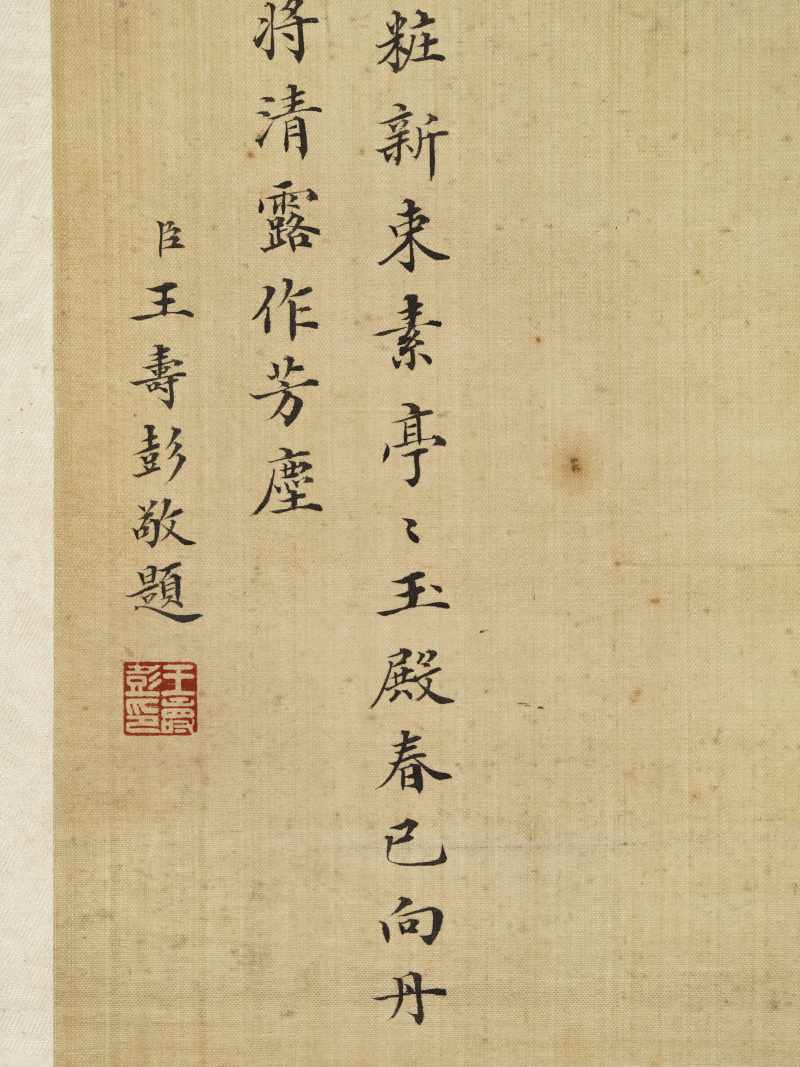 粧新束素亭〻玉殿春已向丹
将清露作芳塵
臣王壽彭敬題
王壽彭印